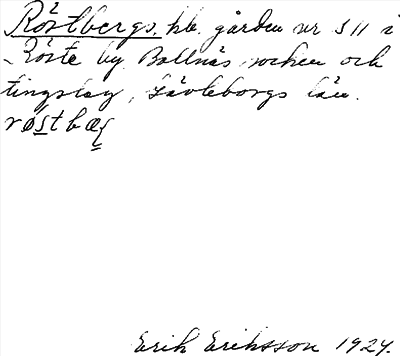 Röstbergs, hb. gården nr 511 i
Röste by Bollnäs socken och
tingslag, Gävleborgs län.
Erik Eriksson 1924.